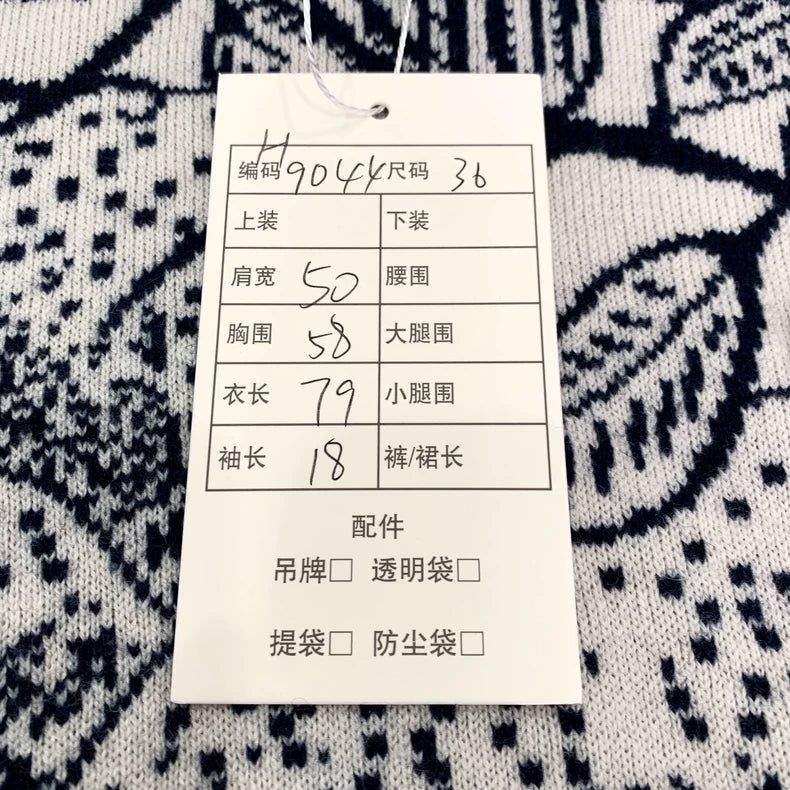 编码 H9044 尺码 36
上装 下装
肩宽 50 腰围
胸围 58 大腿围
衣长 79 小腿围
袖长 18 裤/裙长
配件
吊牌□ 透明袋□
提袋□ 防尘袋□